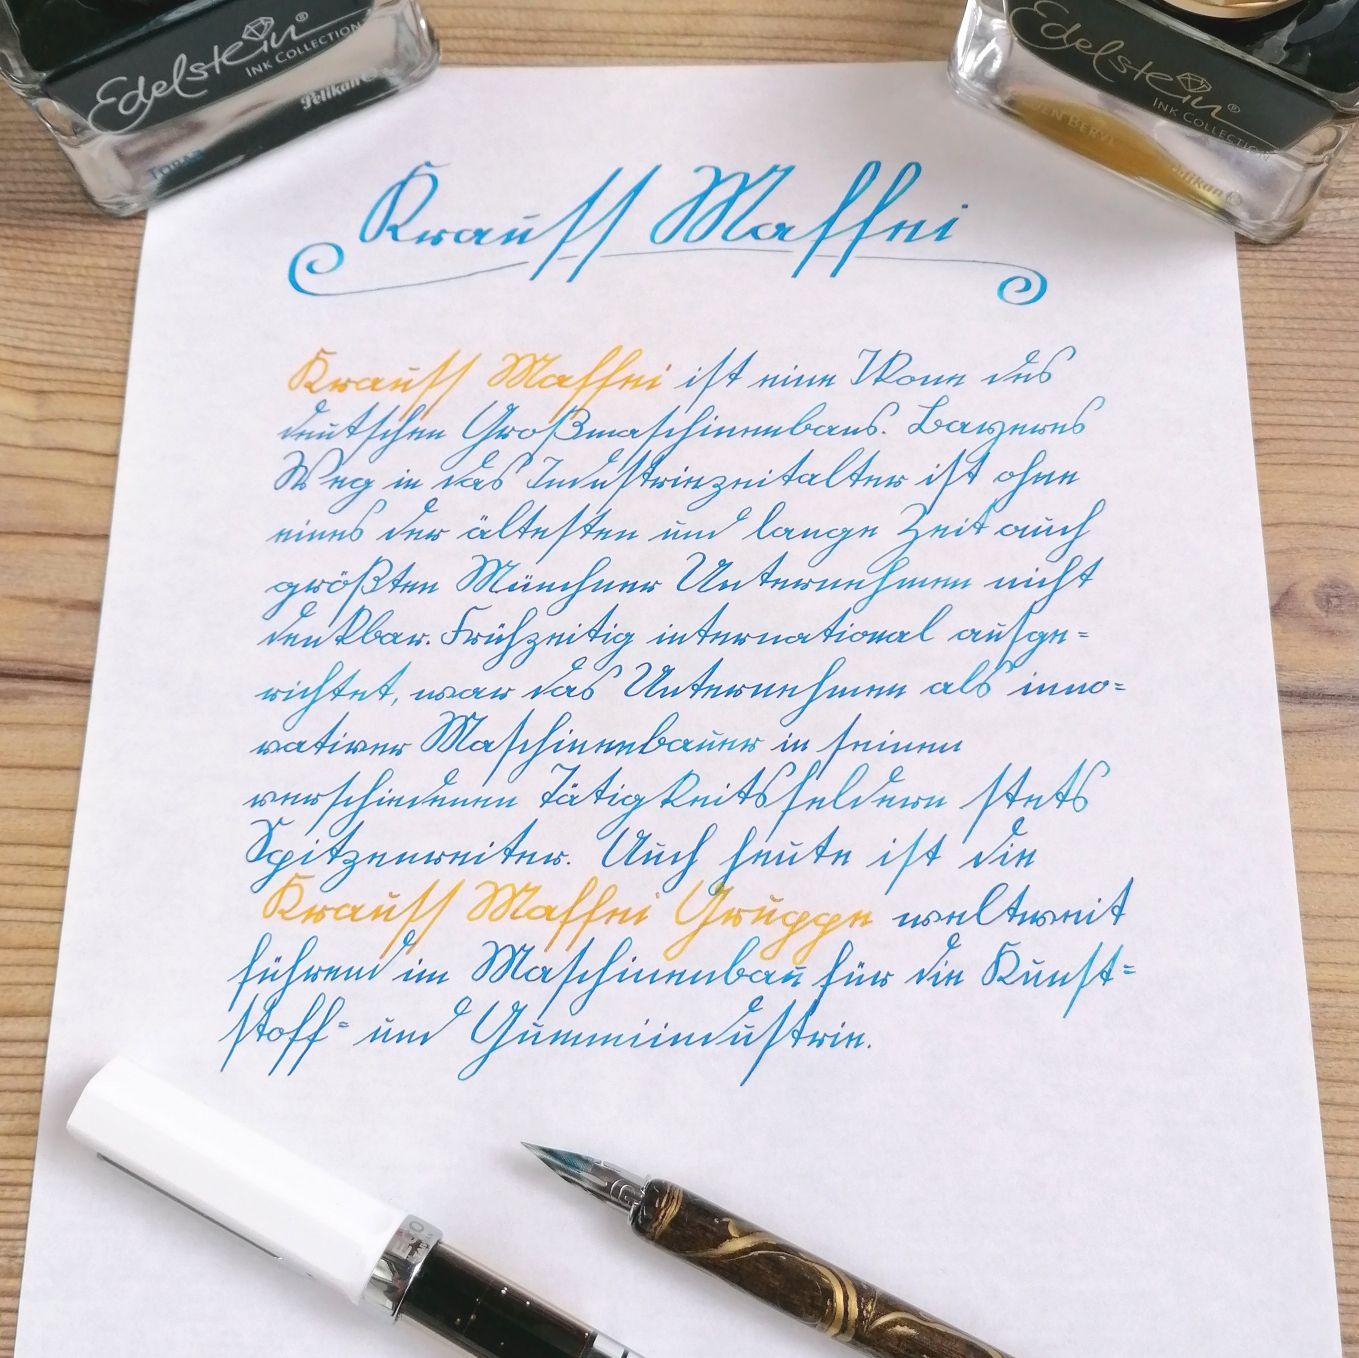 Edelstein®
INK COLLECTION
Pelikan
TOPAZ
Edelstein®
INK COLLECTION
EN BERYL
Pelikan
Krauss Maffei
Krauss Maffei ist eine Ikone des
deutschen Großmaschinenbaus. Bayerns
Weg in das Industriezeitalter ist ohne
eines der ältesten und lange Zeit auch
größten Münchner Unternehmen nicht
denkbar. Frühzeitig international ausge=
richtet, war das Unternehmen als inno=
vativer Maschinenbauer in seinen
verschiedenen Tätigkeitsfeldern stets
Spitzenreiter. Auch heute ist die
Krauss Maffei Gruppe weltweit
führend im Maschinenbau für die Kunst=
stoff= und Gummiindustrie.